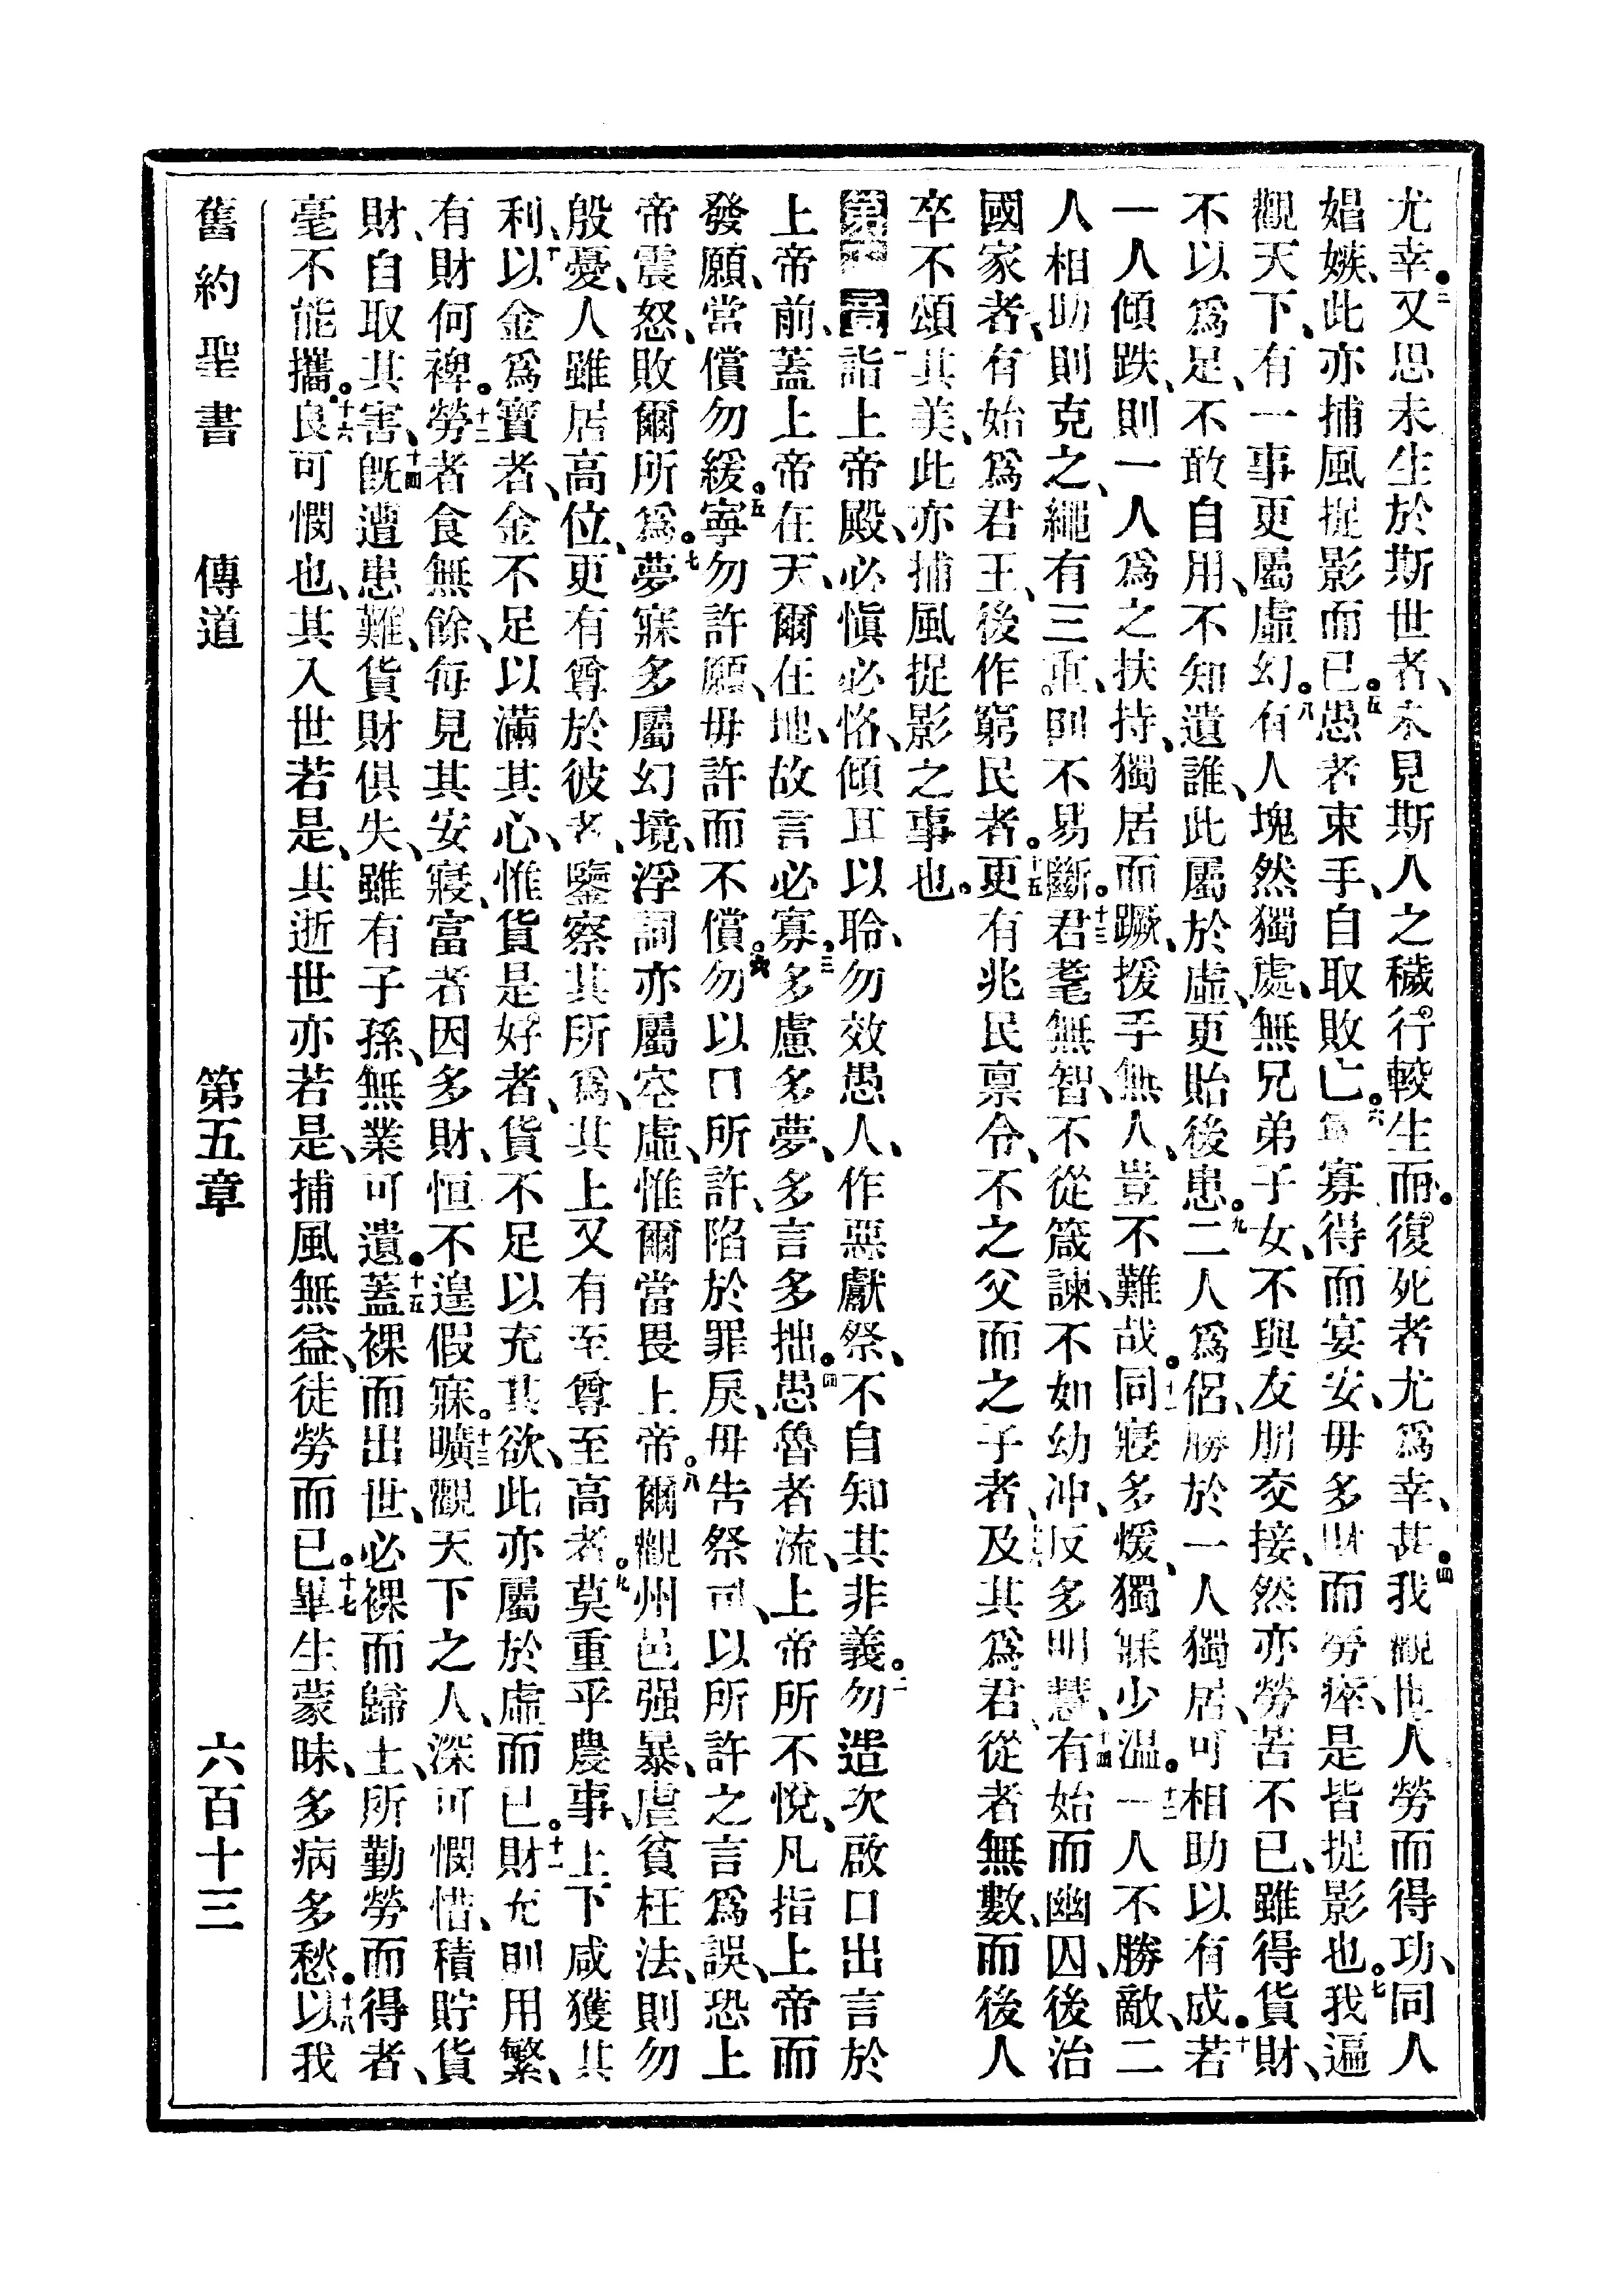 尤幸。三又思未生於斯世者、未見斯人之穢行、較生而復死者尤爲幸甚。四我觀世人勞而得功、同人
娼嫉、此亦捕風捉影而已。五愚者束手、自取敗亡。六寡得而宴安、毋多財而勞瘁、是皆捉影也。七我遍
觀天下、有一事更屬虛幻。八有人塊然獨處、無兄弟子女、不與友朋交接、然亦勞苦不已、雖得貨財、
不以爲足、不敢自用、不知遺誰、此屬於虛、更貽後患。九二人爲侶、勝於一人獨居、可相助以有成。十若
一人傾跌、則一人爲之扶持、獨居而蹶、援手無人、豈不難哉。十一同寢多煖、獨寐少溫。十二一人不勝敵、二
人相助則克之、繩有三重、則不易斷。十三君耄無智、不從箴諫、不如幼冲、反多明慧、十四有始而幽囚、後治
國家者、有始爲君王、後作窮民者。十五更有兆民禀令、不之父而之子者、及其爲君、從者無數、而後人
卒不頌其美、此亦捕風捉影之事也。
第五章一詣上帝殿、必愼必恪、傾耳以聆、勿效愚人、作惡獻祭、不自知其非義。二勿造次啟口出言於
上帝前、蓋上帝在天、爾在地、故言必寡。三多慮多夢、多言多拙。四愚魯者流、上帝所不悅、凡指上帝而
發願、當償勿緩。五寧勿許願、毋許而不償。六勿以口所許、陷於罪戾、毋告祭司、以所許之言爲誤、恐上
帝震怒、敗爾所爲。七夢寐多屬幻境、浮詞亦屬空虛、惟爾當畏上帝。八爾觀州邑强暴、虐貧枉法、則勿
殷憂、人雖居高位、更有尊於彼者、鑒察其所爲、其上又有至尊至高者。九莫重乎農事、上下咸獲其
利、十以金爲寶者、金不足以滿其心、惟貨是好者、貨不足以充其欲、此亦屬於虛而已。十一財充則用繁、
有財何裨。十二勞者食無餘、每見其安寢、富者因多財、恒不遑假寐。十三曠觀天下之人、深可憫惜、積貯貨
財、自取其害、十四旣遭患難、貨財俱失、雖有子孫、無業可遺。十五蓋裸而出世、必裸而歸土、所勤勞而得者、
毫不能攜。十六良可憫也、其入世若是、其逝世亦若是、捕風無益、徒勞而已。十七畢生蒙昧、多病多愁。十八以我
舊約聖書 傳道 第五章 六百十三